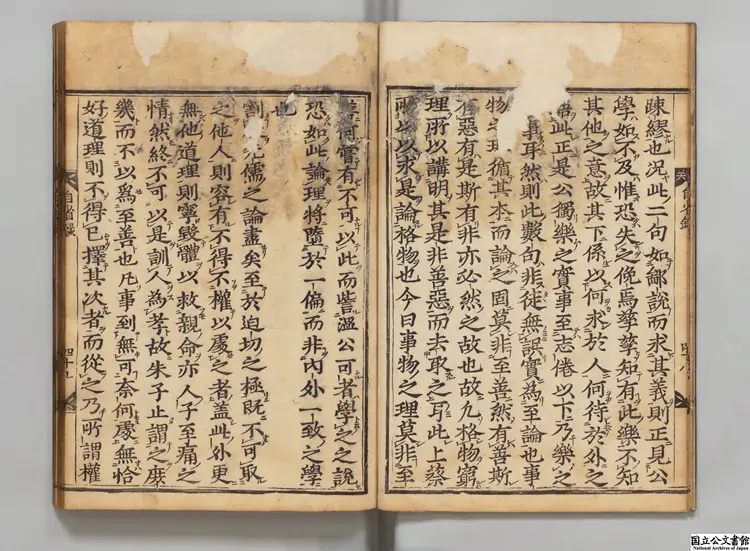 自省錄
四十八
疎繆也況此二句如鄙說而求其義則正見公
學如不及惟恐失之俛焉孳孳知有此樂不知
其他之意故其下係以何求於人何待於外之
此正是公獨樂之實事至志倦以下乃樂之
事耳然則此數句非徒無誤實爲至論也事
物之理循其本而論之固莫非至善然有善斯
有惡有是斯有非亦必然之故也故凡格物窮
理所以講明其是非善惡而去取之耳此上蔡
所以以求是論格物也今日事物之理莫非至
何實有不可以此而訾溫公可者學之之說
恐如此論理將墮於一偏而非內外一致之學
也
割先儒之論盡矣至於迫切之極既不可取
之他人則容有不得不權以處之者蓋此外更
無他道理則寧毀體以救親命亦人子至痛之
情然終不可以是訓人爲孝故朱子止謂之庶
幾而不以爲至善也凡事到無可奈何處無恰
好道理則不得已擇其次者而從之乃所謂權
自省錄
四十九
国立公文書館
National Archives of Japan